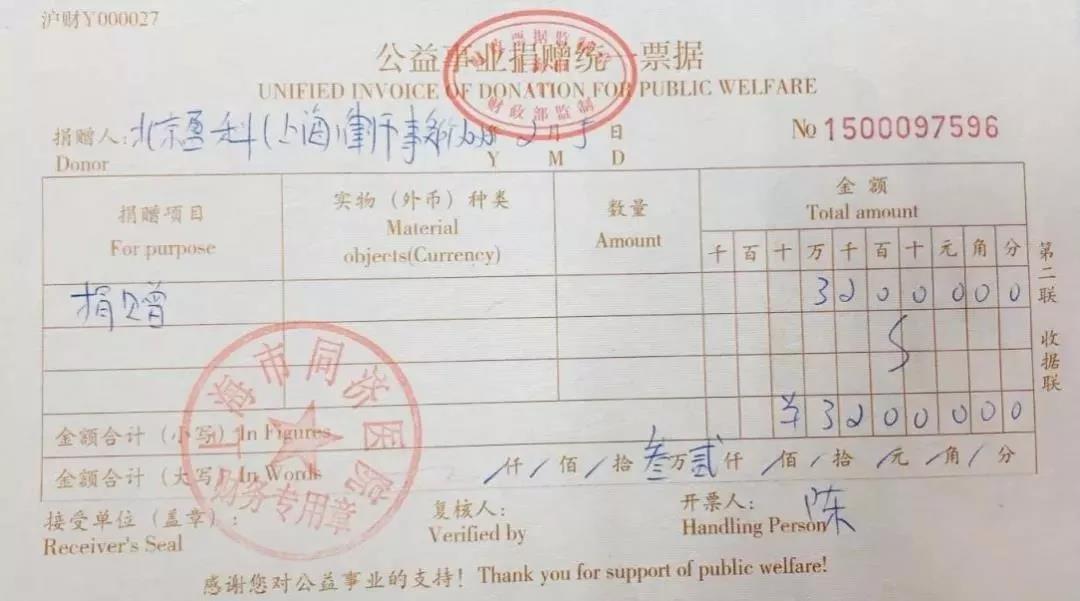 沪财Y000027
公益事业捐赠统一票据
UNIFIED INVOICE OF DONATION FOR PUBLIC WELFARE
财政部监制
捐赠人: 北京盈科(上海)律师事务所 2月5日
Donor Y M D
No 1500097596
捐赠项目
For purpose
实物（外币）种类
Material
objects(Currency)
数量
Amount
金额
Total amount
千 百 十 万 千 百 十 元 角 分
捐赠 3 2 0 0 0 0 0
第二联 收据联
金额合计（小写）In Figures ¥ 3 2 0 0 0 0 0
金额合计（大写）In Words / 仟 / 佰 / 拾 叁 万 贰 仟 / 佰 / 拾 / 元 / 角 / 分
上海市同济医院
财务专用章
接受单位（盖章）:
Receiver's Seal
复核人:
Verified by
开票人: 陈
Handling Person
感谢您对公益事业的支持! Thank you for support of public welfare!